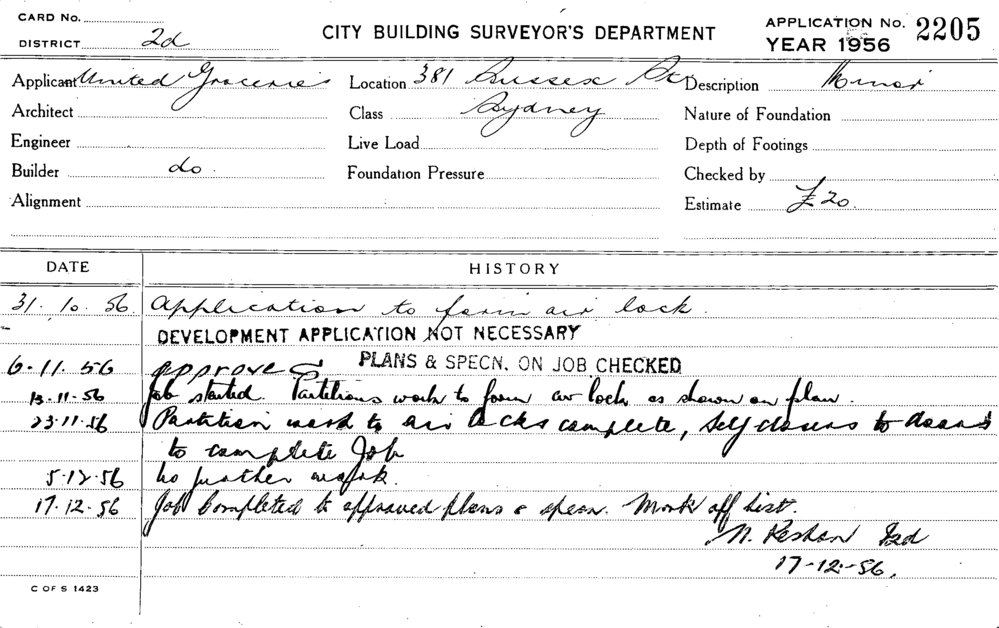 CARD No.
DISTRICT 2d
CITY BUILDING SURVEYOR'S DEPARTMENT
APPLICATION No. 2205
YEAR 1956
Applicant United Groceries Location 381 Sussex St Description Minor
Architect Class Sydney Nature of Foundation
Engineer Live Load Depth of Footings
Builder do. Foundation Pressure Checked by
Alignment Estimate £20.
DATE HISTORY
31. 10. 56. Application to form air lock.
DEVELOPMENT APPLICATION NOT NECESSARY
6. 11. 56 approved PLANS & SPECN. ON JOB CHECKED
13. 11. 56 Job started. Partitions work to form air lock as shown on plan.
23. 11. 56 Partition work to air locks complete, Self closers to doors
to complete Job
5. 12. 56 No further work.
17. 12. 56 Job Completed to approved plans & specn. Mark off List.
N. 2d
17-12-56.
C OF S 1423